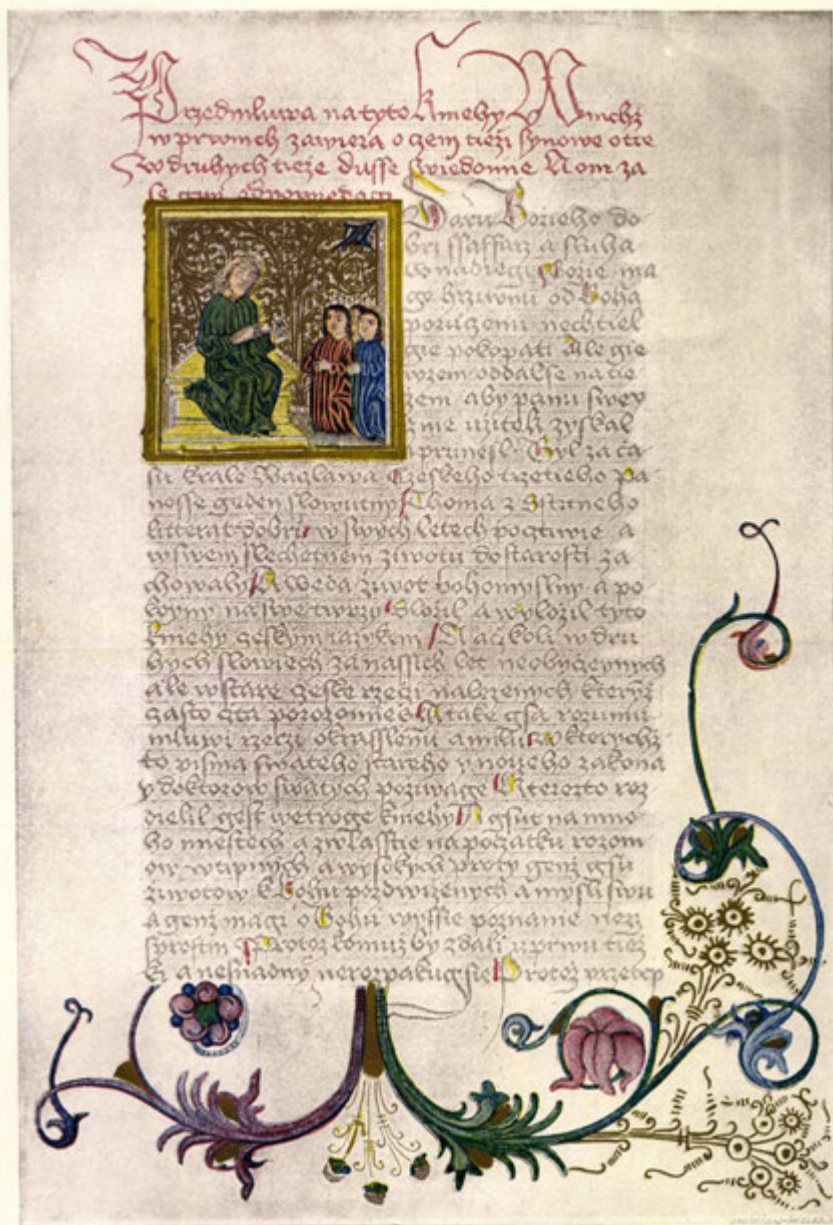 Przedmluwa na tyto kniehy W nichż
w prwnich zawiera o czem tieżi synowe otce
W druhych tieże dusse swiedomie A on za
se gim odpowiedagi
Daru Bożieho do
bri ssaffarz a slucha
boha
poruczenu nechtiel
gie pokopati Ale gie
wzem oddal se na tie
zem aby panu swey
zyskal
a prinesl Byl za ča
su krale Waczlawa Czeskeho trzetieho Pa
nosse geden slowutny Thoma z Sstitneho
litterat dobri w swych letech pocztiwie a
w swem slechetnem ziwotu do starosti za
chowaly A weda ziwot bohomyslny a po
koyny na swe twrzy Slozil a wylozil tyto
kniehy czeskym iazykem A aczkoli w dru
hych slowiech za nassich let neobyczeynych
ale w stare czeske rzeczi nalezenych kteryż
czasto czta porozomie A take gsa rozumu
mluwi rzeczi okrasslenu a milu w kterychż
to pisma swateho stareho y noweho zakona
y doktorow swatych pożiwage Kterezto roz
dielil gest we troge kniehy A gsut na mno
ho miestech a zwlasstie na poczatku rozom
ow wtipnych a wysokych proty genż gsu
ziwotow k Bohu pozdwiżenych a mysli swu
a genż o bohu wyssie poznanie nezz
sprostni Protoż komuż by zdali w prwu tież
ke a nesnadny nerozpakug sie Protoż przetep